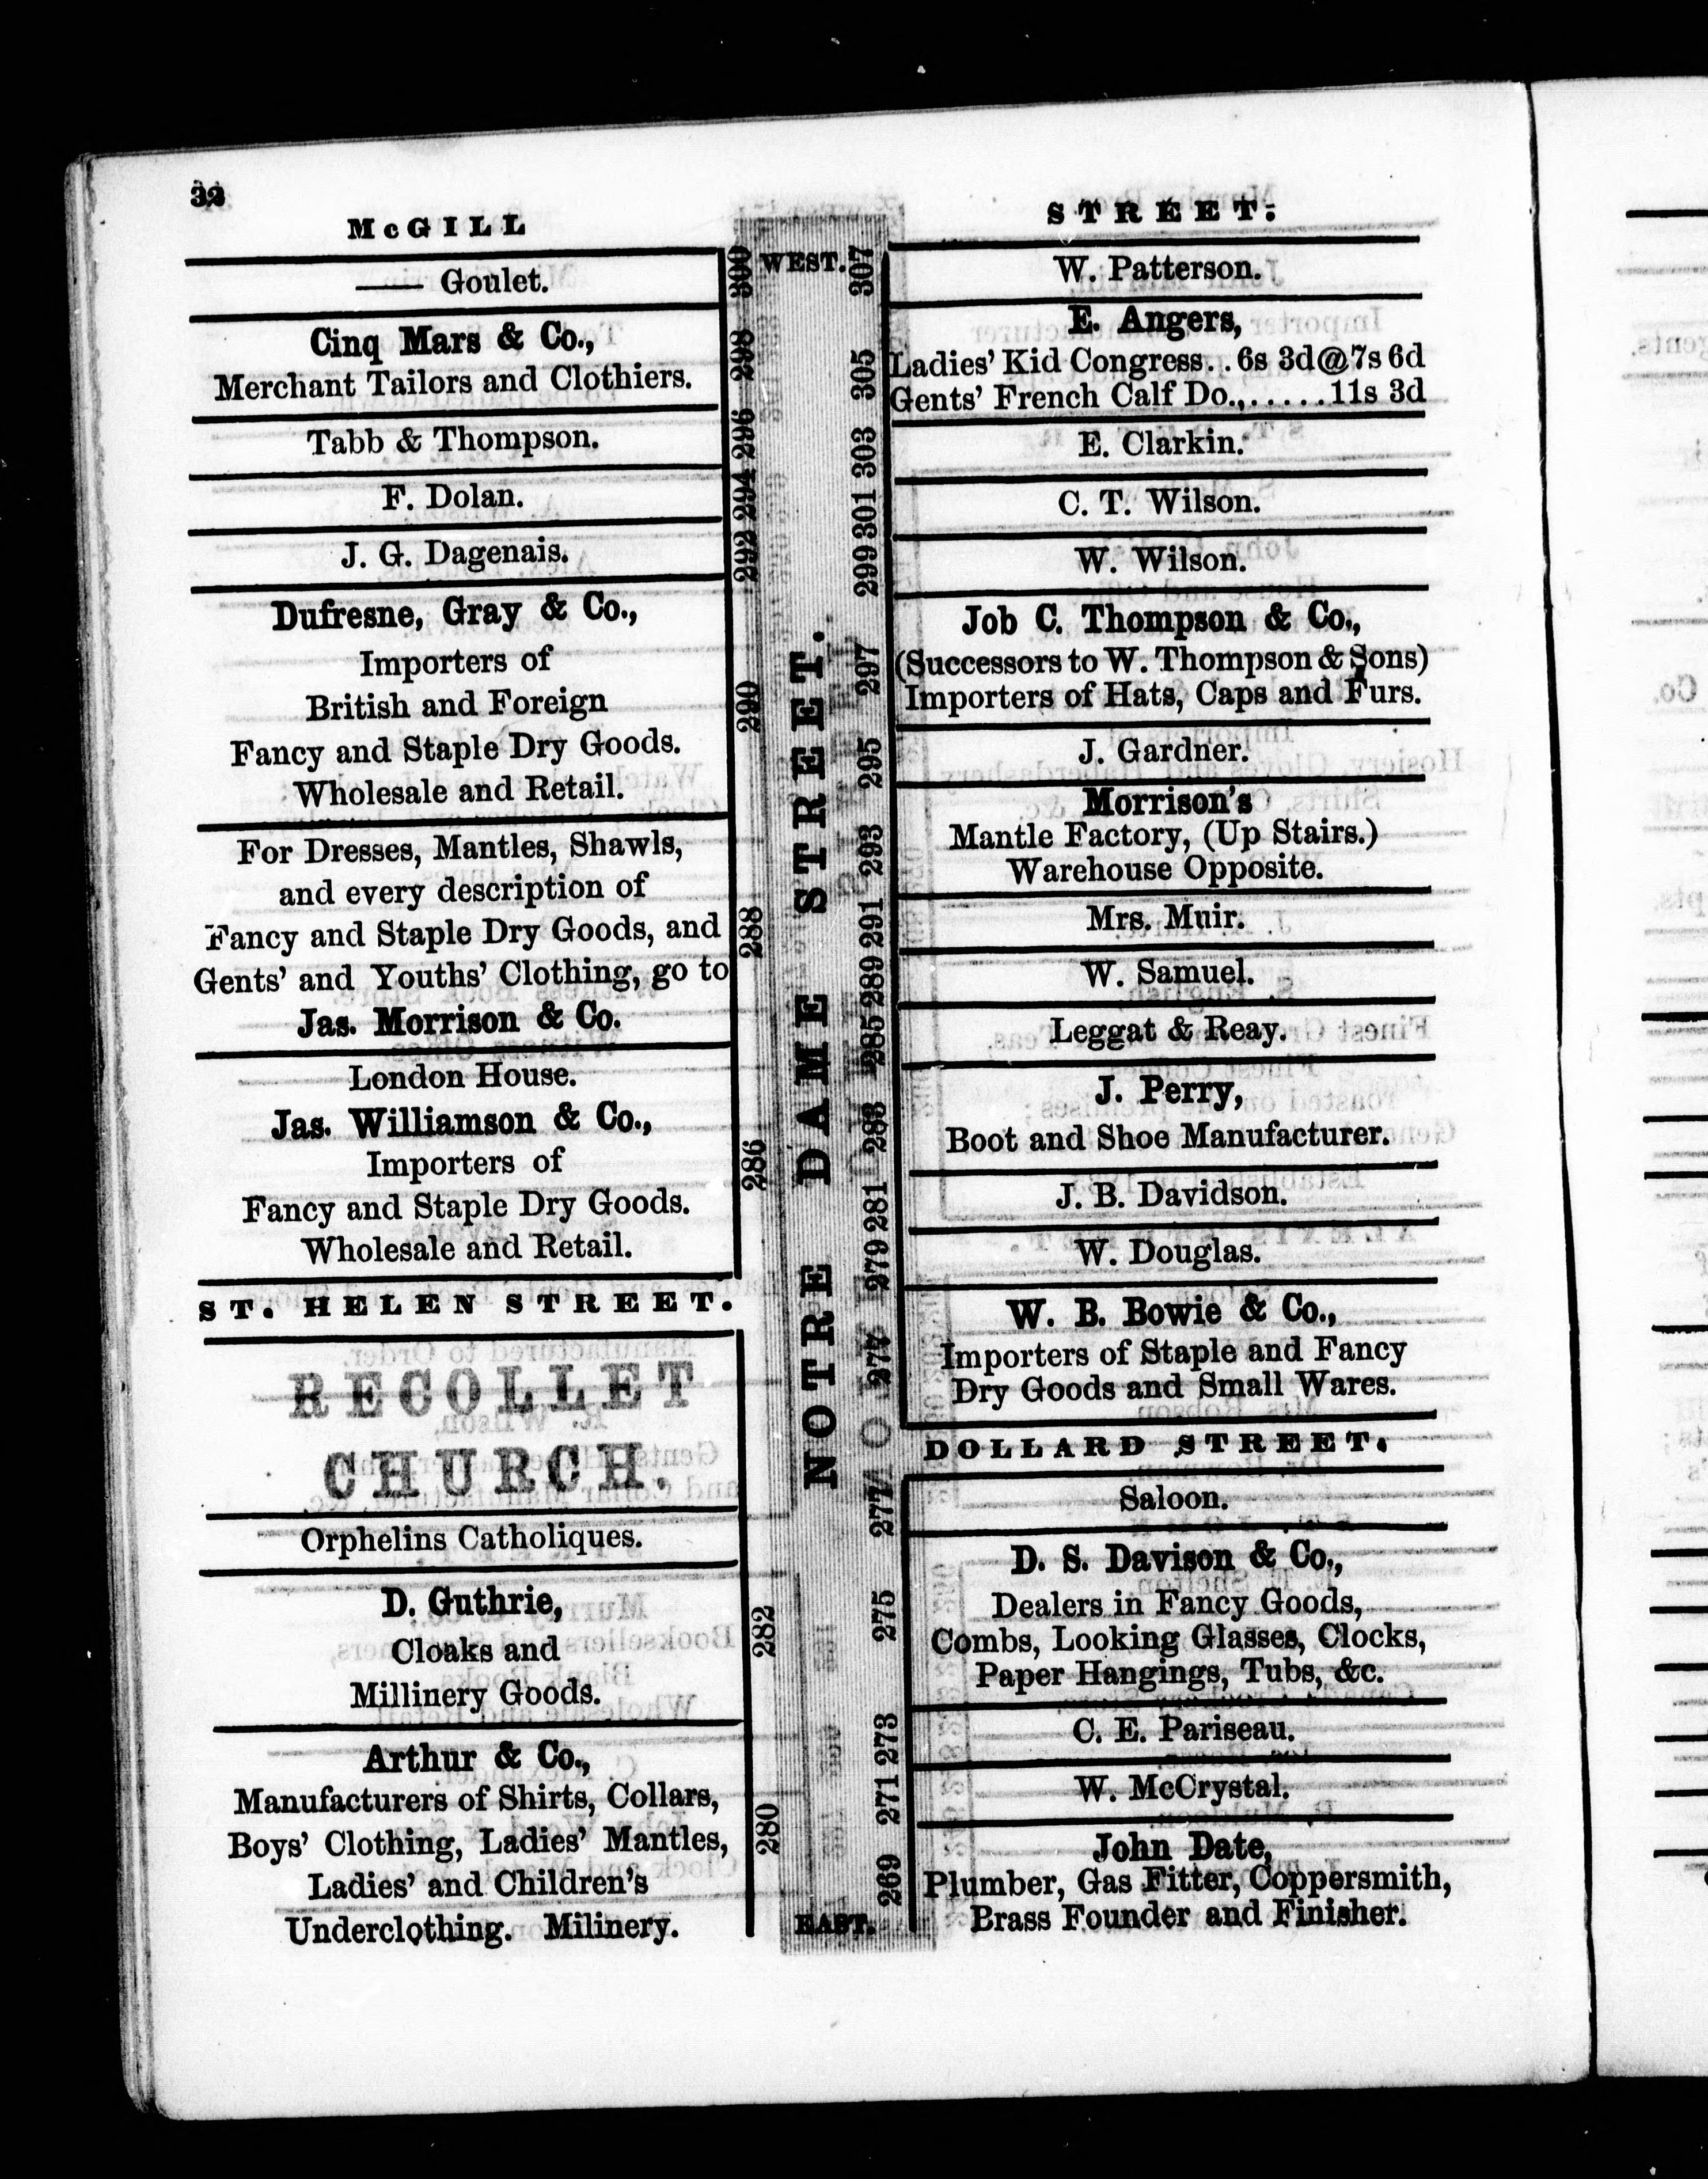 32
McGILL
300
—— Goulet.
298
Cinq Mars & Co.,
Merchant Tailors and Clothiers.
296
Tabb & Thompson.
294
F. Dolan.
292
J. G. Dagenais.
290
Dufresne, Gray & Co.,
Importers of
British and Foreign
Fancy and Staple Dry Goods.
Wholesale and Retail.
288
For Dresses, Mantles, Shawls,
and every description of
Fancy and Staple Dry Goods, and
Gents' and Youths' Clothing, go to
Jas. Morrison & Co.
286
London House.
Jas. Williamson & Co.,
Importers of
Fancy and Staple Dry Goods.
Wholesale and Retail.
ST. HELEN STREET.
RECOLLET
CHURCH.
Orphelins Catholiques.
282
D. Guthrie,
Cloaks and
Millinery Goods.
280
Arthur & Co.,
Manufacturers of Shirts, Collars,
Boys' Clothing, Ladies' Mantles,
Ladies' and Children's
Underclothing. Milinery.
WEST.
NOTRE DAME STREET.
EAST.
STREET.
307
W. Patterson.
305
E. Angers,
Ladies' Kid Congress.. 6s 3d@7s 6d
Gents' French Calf Do.,.....11s 3d
303
E. Clarkin.
301
C. T. Wilson.
299
W. Wilson.
297
Job C. Thompson & Co.,
(Successors to W. Thompson & Sons)
Importers of Hats, Caps and Furs.
295
J. Gardner.
293
Morrison's
Mantle Factory, (Up Stairs.)
Warehouse Opposite.
291
Mrs. Muir.
289
W. Samuel.
285
Leggat & Reay.
283
J. Perry,
Boot and Shoe Manufacturer.
281
J. B. Davidson.
279
W. Douglas.
277
W. B. Bowie & Co.,
Importers of Staple and Fancy
Dry Goods and Small Wares.
DOLLARD STREET.
277
Saloon.
275
D. S. Davison & Co.,
Dealers in Fancy Goods,
Combs, Looking Glasses, Clocks,
Paper Hangings, Tubs, &c.
273
C. E. Pariseau.
271
W. McCrystal.
269
John Date,
Plumber, Gas Fitter, Coppersmith,
Brass Founder and Finisher.